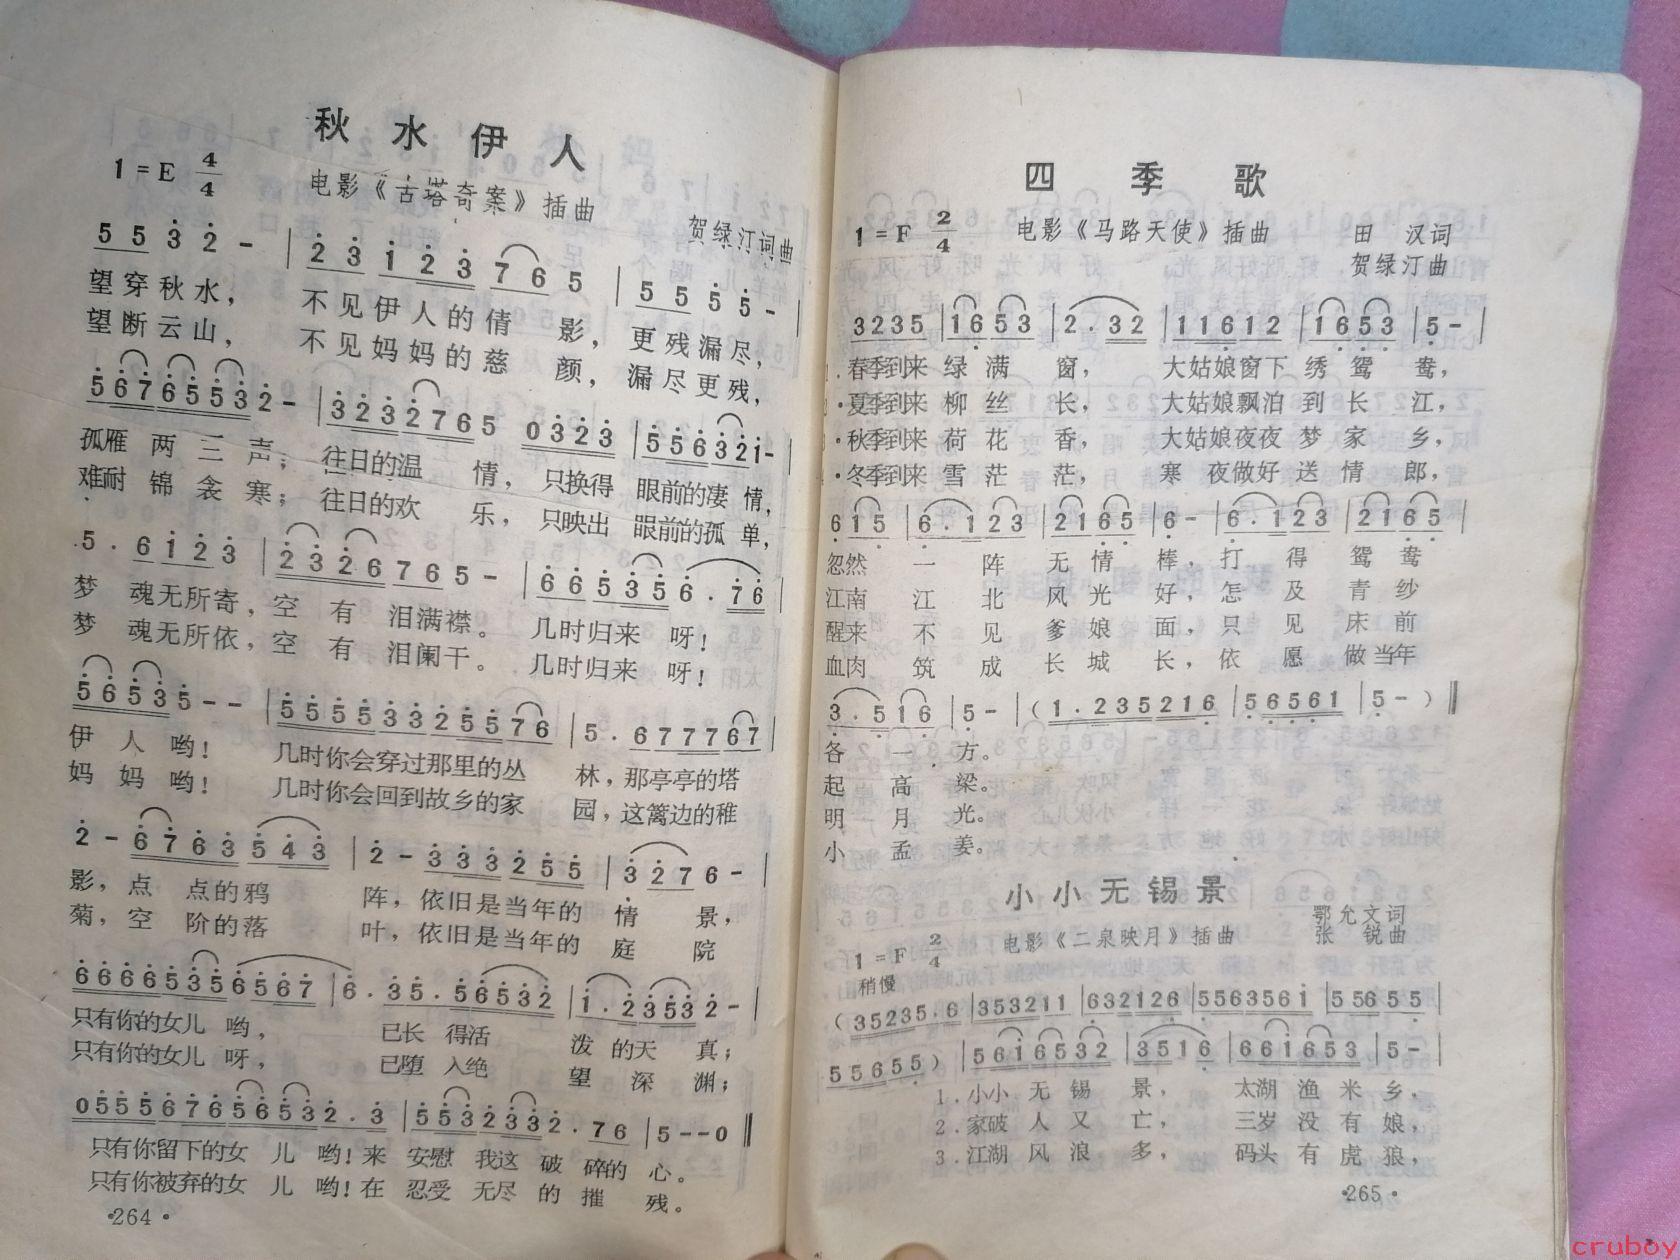 秋水伊人
1=E 4/4
电影《古塔奇案》插曲
贺绿汀词曲
5 5 3 2 - | 2 3 1 2 3 7 6 5 | 5 5 5 5 - |
望穿秋水， 不见伊人的倩 影， 更残漏尽，
望断云山， 不见妈妈的慈 颜， 漏尽更残，
5 6 7 6 5 5 3 2 - | 3 2 3 2 7 6 5 0 3 2 3 | 5 5 6 3 2 1 - |
孤雁 两 三 声； 往日的温 情， 只换得 眼前的凄 情，
难耐 锦 衾 寒； 往日的欢 乐， 只映出 眼前的孤 单，
5 . 6 1 2 3 | 2 3 2 6 7 6 5 - | 6 6 5 3 5 6 . 7 6 |
梦 魂无所寄，空 有 泪满襟。 几时归来 呀！
梦 魂无所依，空 有 泪阑干。 几时归来 呀！
5 6 5 3 5 - - | 5 5 5 5 3 3 2 5 5 7 6 | 5 . 6 7 7 7 6 7 |
伊 人 哟！ 几时你会穿过那里的丛 林，那亭亭的塔
妈 妈 哟！ 几时你会回到故乡的家 园，这篱边的稚
2 - 6 7 6 3 5 4 3 | 2 - 3 3 3 2 5 5 | 3 2 7 6 - |
影，点 点的鸦 阵，依旧是当年的 情 景，
菊，空 阶的落 叶，依旧是当年的 庭 院
6 6 6 6 5 3 5 6 5 6 7 | 6 . 3 5 . 5 6 5 3 2 | 1 . 2 3 5 3 2 - |
只有你的女儿 哟， 已长 得活 泼 的天 真；
只有你的女儿 呀， 已堕 入绝 望 深 渊；
0 5 5 5 6 7 6 5 6 5 3 2 . 3 | 5 5 3 2 3 3 2 . 7 6 | 5 - - 0 ‖
只有你留下的女 儿 哟！来 安慰 我这 破 碎的 心。
只有你被弃的女 儿 哟！在 忍受 无尽 的 摧 残。
·264·
四季歌
1=F 2/4
电影《马路天使》插曲
田 汉词
贺绿汀曲
3 2 3 5 | 1 6 5 3 | 2 . 3 2 | 1 1 6 1 2 | 1 6 5 3 | 5 - |
春季到来 绿 满 窗， 大姑娘窗下 绣 鸳 鸯，
·夏季到来 柳 丝 长， 大姑娘飘泊 到 长 江，
·秋季到来 荷 花 香， 大姑娘夜夜 梦 家 乡，
·冬季到来 雪 茫 茫， 寒 夜做好 送 情 郎，
6 1 5 | 6 . 1 2 3 | 2 1 6 5 | 6 - | 6 . 1 2 3 | 2 1 6 5 |
忽然 一 阵 无 情 棒，打 得 鸳 鸯
江南 江 北 风 光 好，怎 及 青 纱
醒来 不 见 爹 娘 面，只 见 床 前
血肉 筑 成 长 城 长，依 愿 做 当年
3 . 5 1 6 | 5 - | （1 . 2 3 5 2 1 6 | 5 6 5 6 1 | 5 - ）‖
各 一 方。
起 高 梁。
明 月 光。
小 孟 姜。
小小无锡景
鄂允文词
1=F 2/4
电影《二泉映月》插曲
张 锐曲
稍慢
（3 5 2 3 5 . 6 | 3 5 3 2 1 1 | 6 3 2 1 2 6 | 5 5 6 3 5 6 1 | 5 5 6 5 5 |
5 5 6 5 5 ）| 5 6 1 6 5 3 2 | 3 5 1 6 | 6 6 1 6 5 3 | 5 - |
1.小小 无 锡 景， 太湖 渔 米 乡，
2.家破 人 又 亡， 三岁 没 有 娘，
3.江湖 风 浪 多， 码头 有 虎 狼，
·265·
cruboy